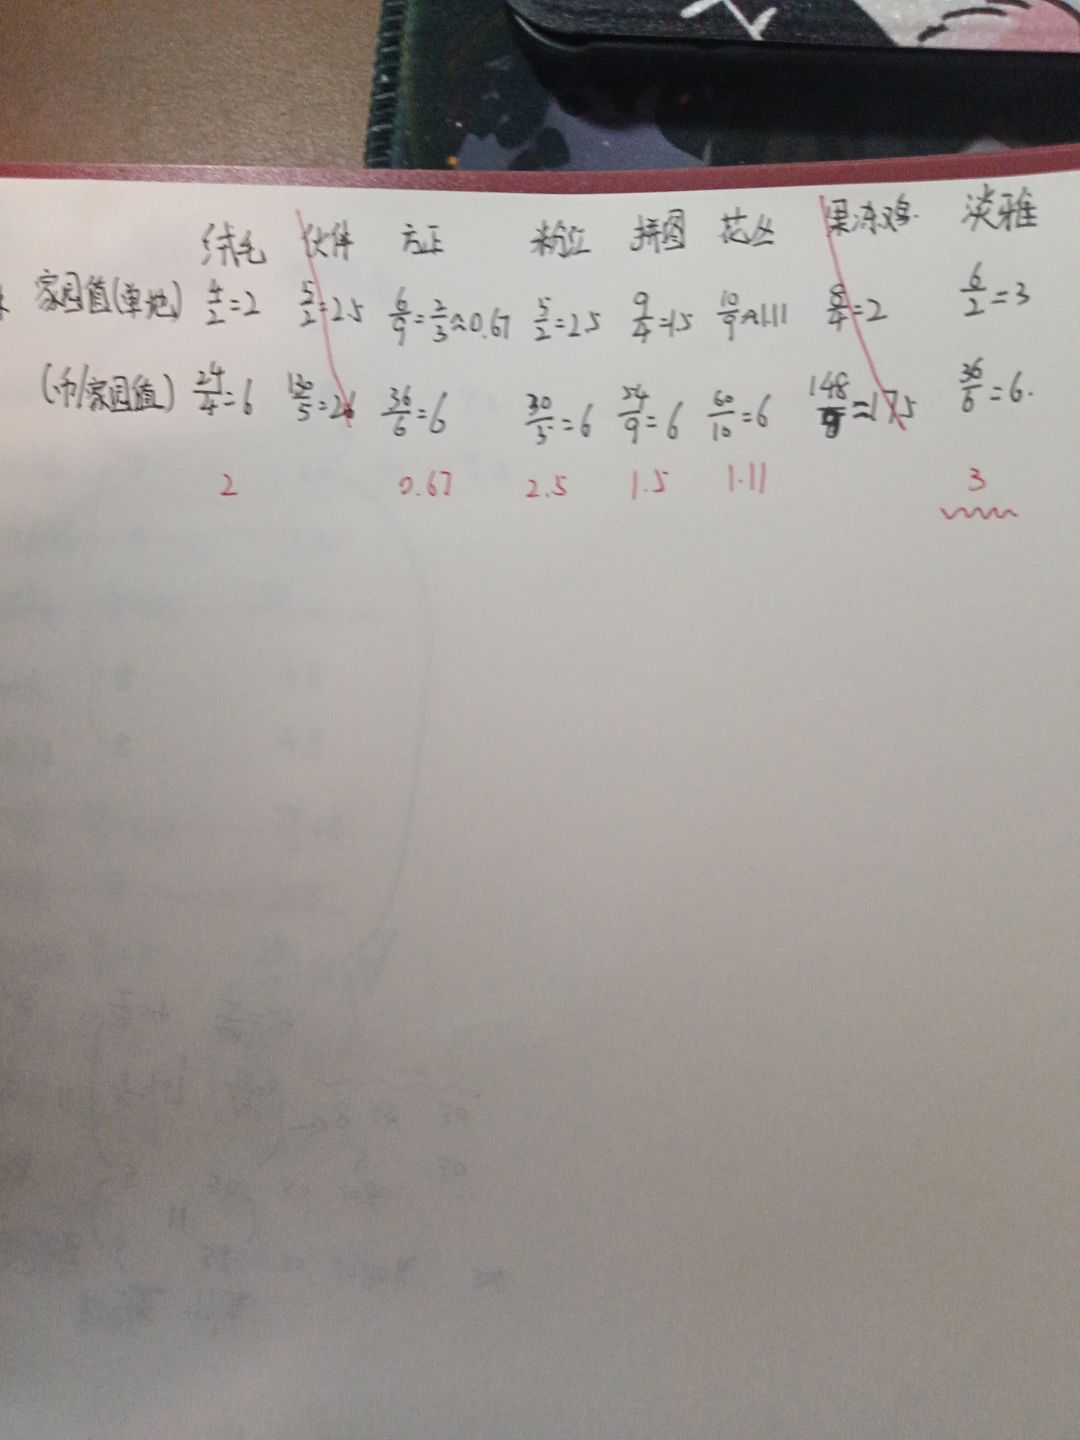 绒毛 伙伴 方正 粉红 拼图 花丛 果冻鸡 淡雅
家园值(单地) 4/2=2 5/2=2.5 6/9=2/3≈0.67 5/2=2.5 9/4=1.5 10/9≈1.11 8/4=2 6/2=3
(币/家园值) 24/4=6 130/5=26 36/6=6 30/5=6 54/9=6 60/10=6 148/8=17.5 36/6=6.
2 0.67 2.5 1.5 1.11 3